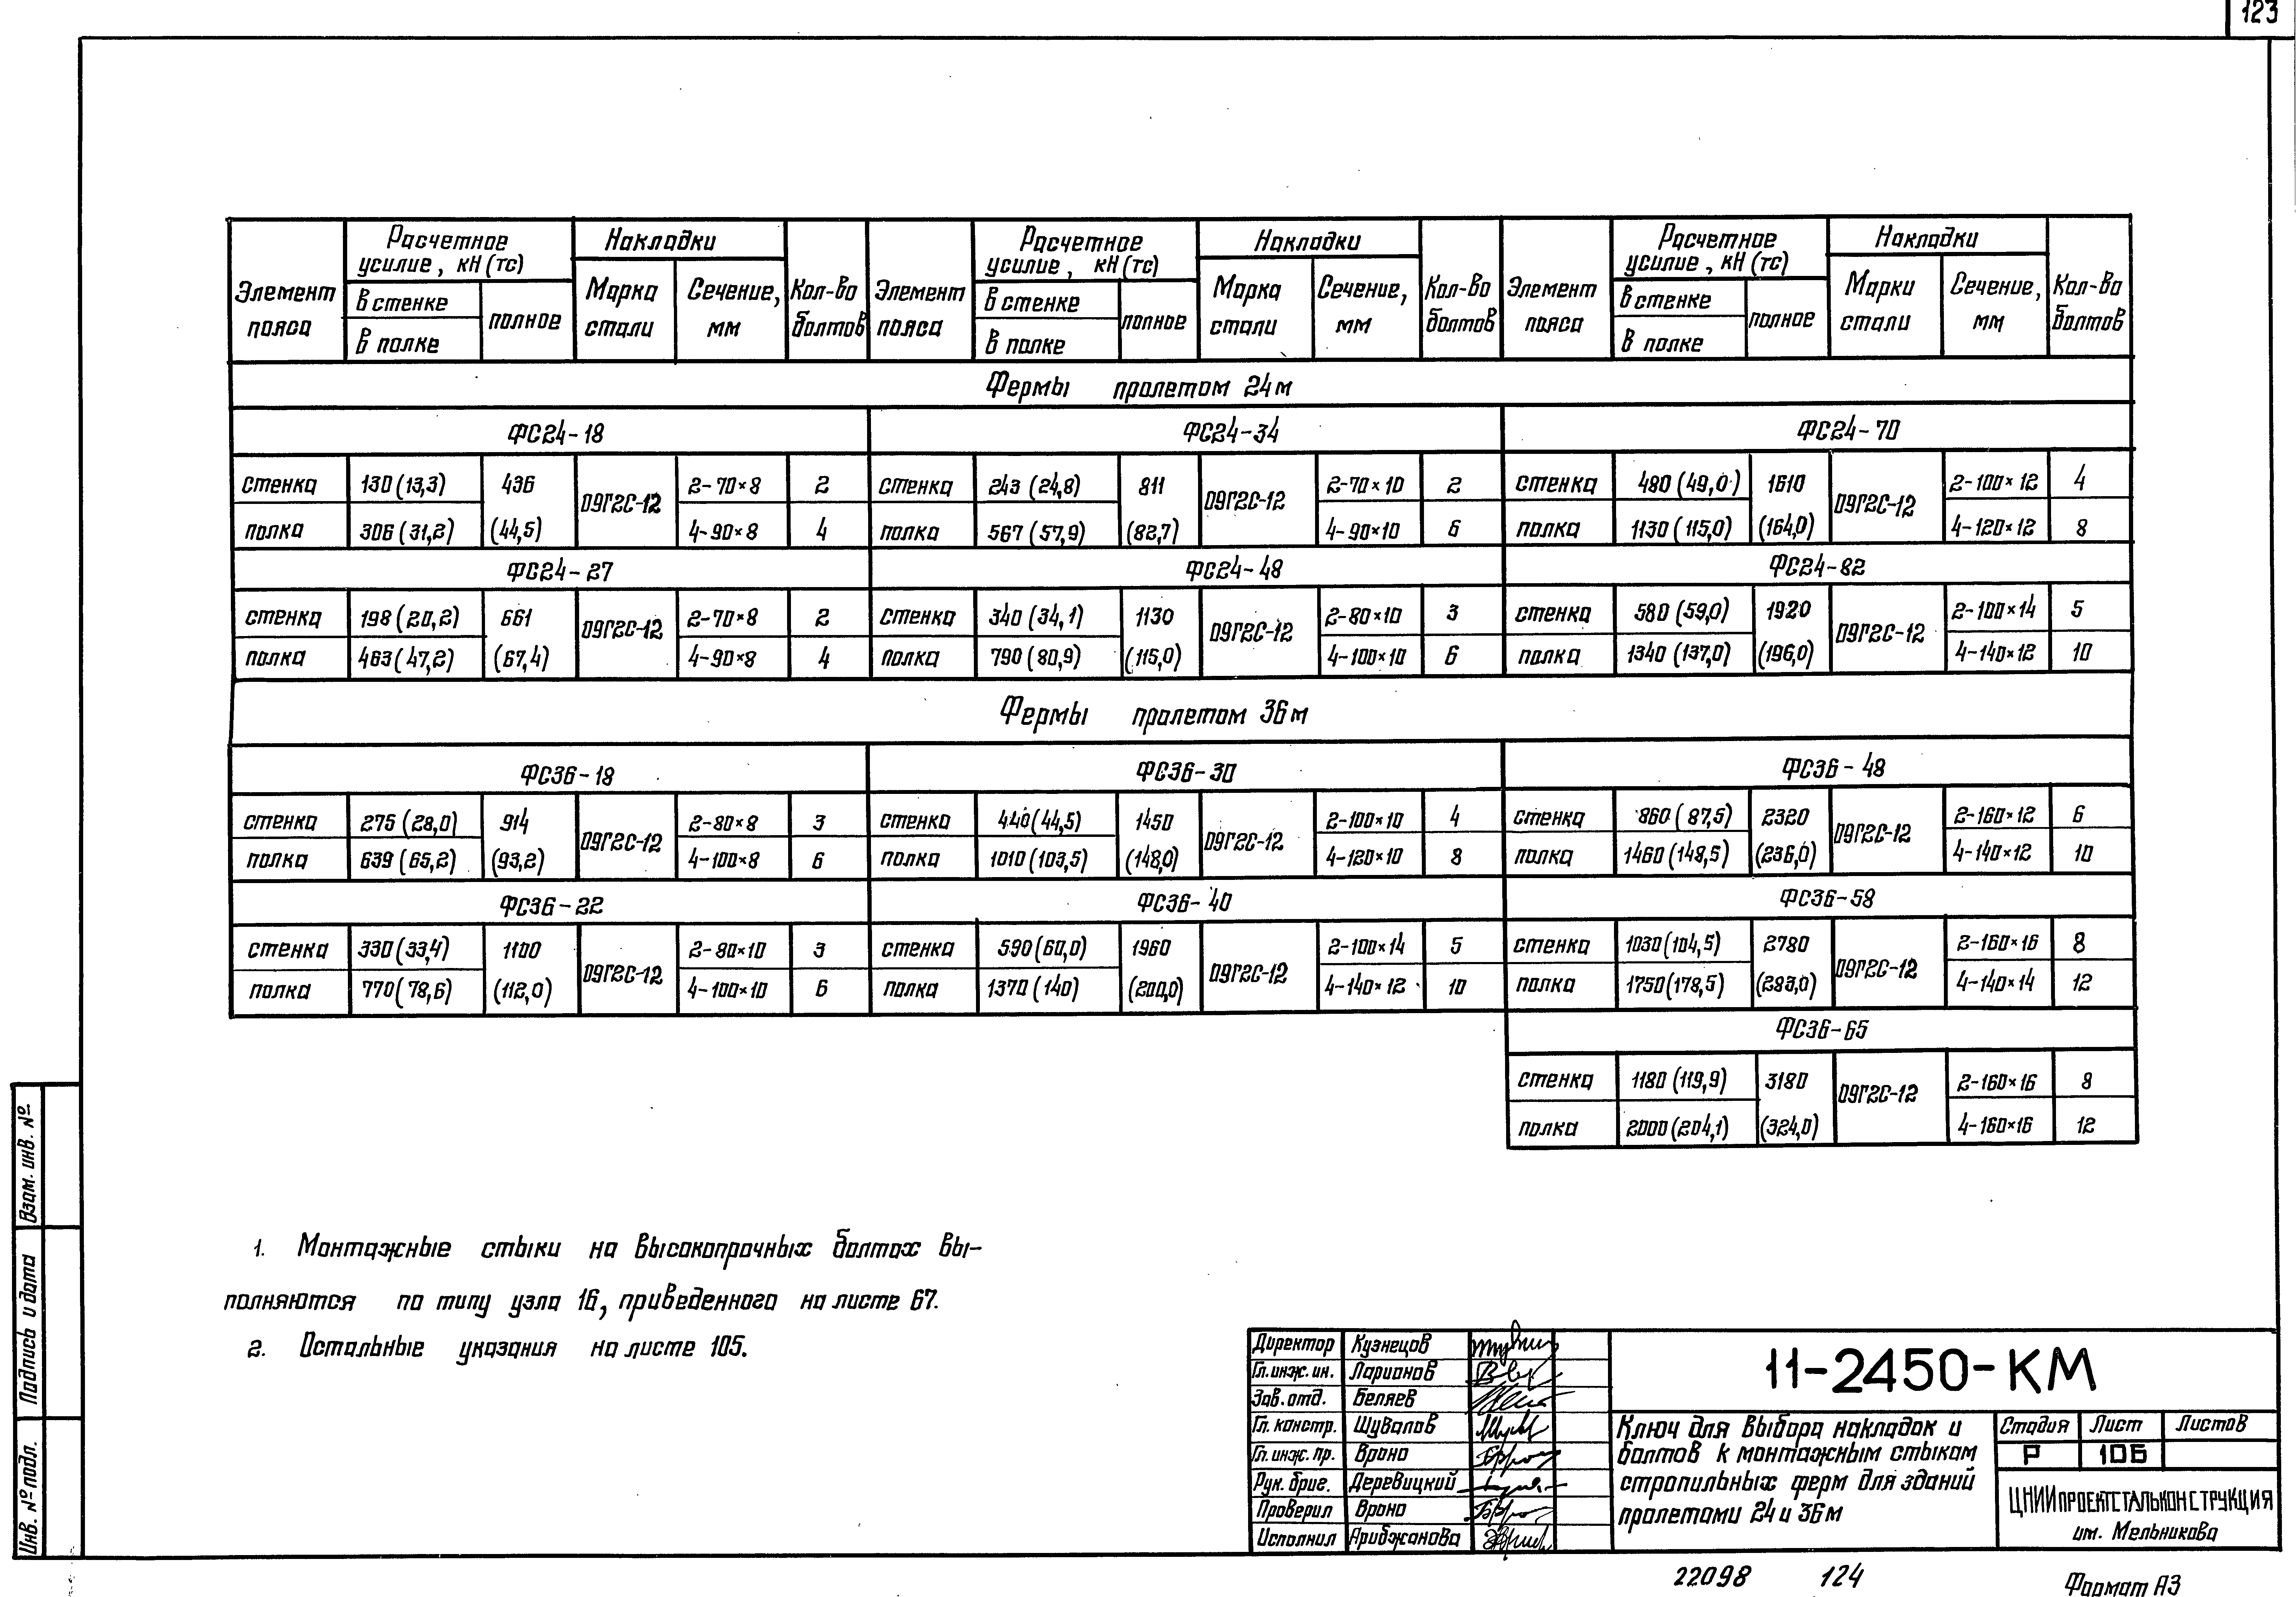 123
Элемент пояса | Расчетное усилие, кН (тс) | Накладки | Кол-во болтов | Элемент пояса | Расчетное усилие, кН (тс) | Накладки | Кол-во болтов | Элемент пояса | Расчетное усилие, кН (тс) | Накладки | Кол-во болтов
в стенке | полное | Марка стали | Сечение, мм | в стенке | полное | Марка стали | Сечение, мм | в стенке | полное | Марки стали | Сечение, мм
в полке | в полке | в полке
Фермы пролетом 24м
ФС24-18 | ФС24-34 | ФС24-70
стенка | 130 (13,3) | 436 | 09Г2С-12 | 2-70×8 | 2 | стенка | 243 (24,8) | 811 | 09Г2С-12 | 2-70×10 | 2 | стенка | 480 (49,0) | 1610 | 09Г2С-12 | 2-100×12 | 4
полка | 306 (31,2) | (44,5) | 4-90×8 | 4 | полка | 567 (57,9) | (82,7) | 4-90×10 | 6 | полка | 1130 (115,0) | (164,0) | 4-120×12 | 8
ФС24-27 | ФС24-48 | ФС24-82
стенка | 198 (20,2) | 661 | 09Г2С-12 | 2-70×8 | 2 | стенка | 340 (34,1) | 1130 | 09Г2С-12 | 2-80×10 | 3 | стенка | 580 (59,0) | 1920 | 09Г2С-12 | 2-100×14 | 5
полка | 463 (47,2) | (67,4) | 4-90×8 | 4 | полка | 790 (80,9) | (115,0) | 4-100×10 | 6 | полка | 1340 (137,0) | (196,0) | 4-140×12 | 10
Фермы пролетом 36м
ФС36-18 | ФС36-30 | ФС36-48
стенка | 275 (28,0) | 914 | 09Г2С-12 | 2-80×8 | 3 | стенка | 440 (44,5) | 1450 | 09Г2С-12 | 2-100×10 | 4 | стенка | 860 (87,5) | 2320 | 09Г2С-12 | 2-160×12 | 6
полка | 639 (65,2) | (93,2) | 4-100×8 | 6 | полка | 1010 (103,5) | (148,0) | 4-120×10 | 8 | полка | 1460 (148,5) | (236,0) | 4-140×12 | 10
ФС36-22 | ФС36-40 | ФС36-58
стенка | 330 (33,4) | 1100 | 09Г2С-12 | 2-80×10 | 3 | стенка | 590 (60,0) | 1960 | 09Г2С-12 | 2-100×14 | 5 | стенка | 1030 (104,5) | 2780 | 09Г2С-12 | 2-160×16 | 8
полка | 770 (78,6) | (112,0) | 4-100×10 | 6 | полка | 1370 (140) | (200,0) | 4-140×12 | 10 | полка | 1750 (178,5) | (283,0) | 4-140×14 | 12
ФС36-65
стенка | 1180 (119,9) | 3180 | 09Г2С-12 | 2-160×16 | 8
полка | 2000 (204,1) | (324,0) | 4-160×16 | 12
1. Монтажные стыки на высокопрочных болтах вы-
полняются по типу узла 16, приведенного на листе 67.
2. Остальные указания на листе 105.
Взам. инв. №
Подпись и дата
Инв. № подл.
Директор Кузнецов
Гл. инж. ин. Ларионов
Зав. отд. Беляев
Гл. констр. Шувалов
Гл. инж. пр. Вроно
Рук. бриг. Деревицкий
Проверил Вроно
Исполнил Арибжанова
11-2450-КМ
Ключ для выбора накладок и
болтов к монтажным стыкам
стропильных ферм для зданий
пролетами 24 и 36м
Стадия Лист Листов
Р 106
ЦНИИПРОЕКТСТАЛЬКОНСТРУКЦИЯ
им. Мельникова
22098 124
Формат А3